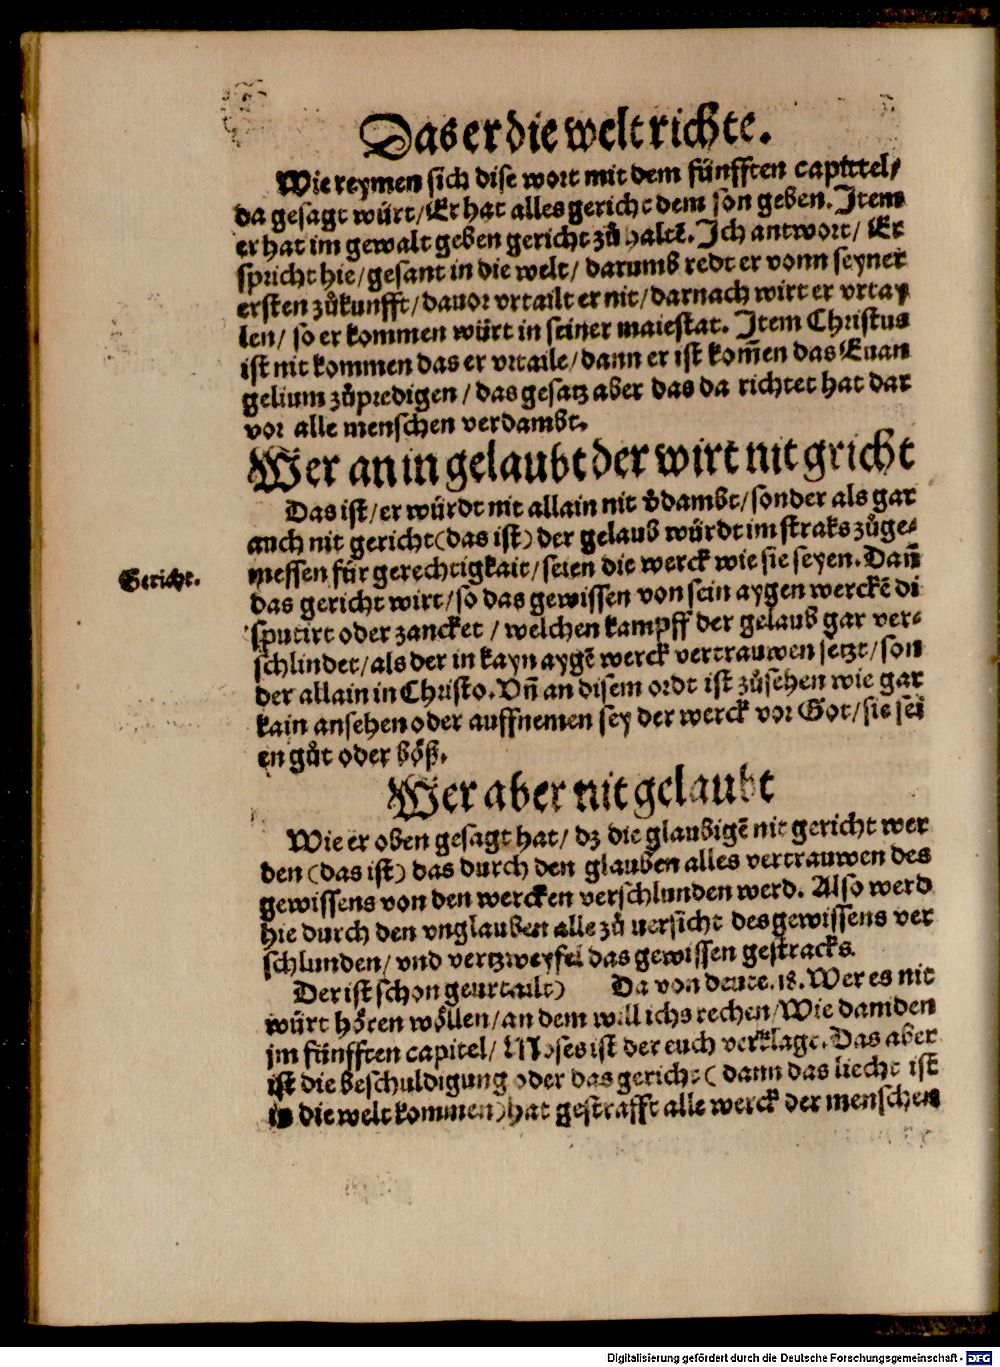 Das er die welt richte.
Wie reymen sich dise wort mit dem fünfften capittel/
da gesagt würt/ Er hat alles gericht dem son geben. Item
er hat im gewalt geben gericht zů haltē. Ich antwort/ Er
spricht hie/ gesant in die welt/ darumb redt er vonn seyner
ersten zůkunfft/ dauor vrtailt er nit/ darnach wirt er vrtay
len/ so er kommen würt in seiner maiestat. Item Christus
ist nit kommen das er vrtaile/ dann er ist kom̄en das Euan
gelium zůpredigen/ das gesatz aber das da richtet hat dar
vor alle menschen verdambt.
Wer an in gelaubt der wirt nit gricht
Das ist/ er würdt nit allain nit v̄dambt/ sonder als gar
auch nit gericht (das ist) der gelaub würdt im straks zůge-
messen für gerechtigkait/ seien die werck wie sie seyen. Dan̄
Gericht.
das gericht wirt/ so das gewissen von sein aygen werckē di
sputirt oder zancket/ welchen kampff der gelaub gar ver-
schlindet/ als der in kayn aygē werck vertrauwen setzt/ son
der allain in Christo. Vn̄ an disem ordt ist zůsehen wie gar
kain ansehen oder auffnemen sey der werck vor Got/ sie sei
en gůt oder böß.
Wer aber nit gelaubt
Wie er oben gesagt hat/ dz die glaubigē nit gericht wer
den (das ist) das durch den glauben alles vertrauwen des
gewissens von den wercken verschlunden werd. Also werd
hie durch den vnglauben alle zů uersicht des gewissens ver
schlunden/ vnd vertzweyfel das gewissen gestracks.
Der ist schon geurtailt) Da von deute. 18. Wer es nit
würt hören wöllen/ an dem will ichs rechen/ Wie damden
im fünfften capitel/ Moses ist der euch verklagt. Das aber
ist die beschuldigung oder das gericht (dann das liecht ist
in die welt kommen) hat gestrafft alle werck der menschen
Digitalisierung gefördert durch die Deutsche Forschungsgemeinschaft - DFG